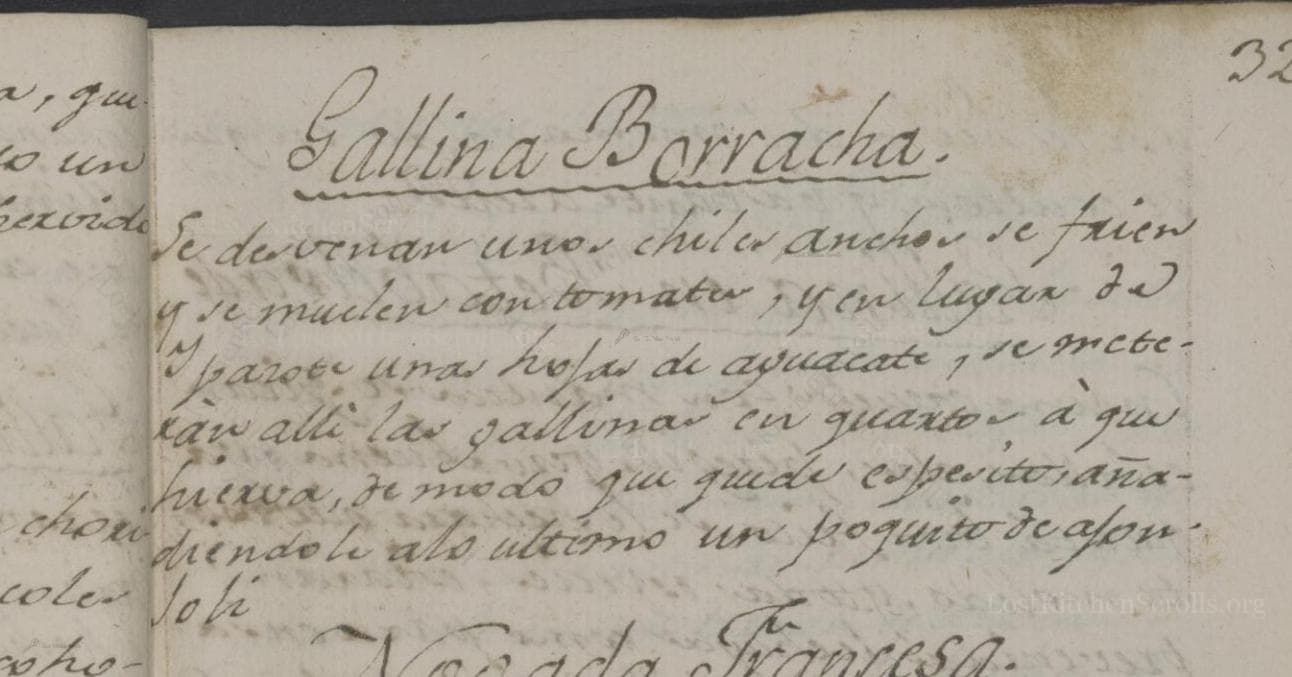 32
a, que
co un
herbide
choxi
coles
coho-
Gallina Borracha.
Se desvenan unos chiles anchos se frien
y se muelen con tomates, y en lugar de
Ypazote unas hojas de aguacate, se mete-
ràn alli las gallinas en quartos à que
hierva, de modo que quede espesito, aña-
diendole alo ultimo un poquito de ajon-
joli
Nogada Francesa.
LostKitchenScrolls.org